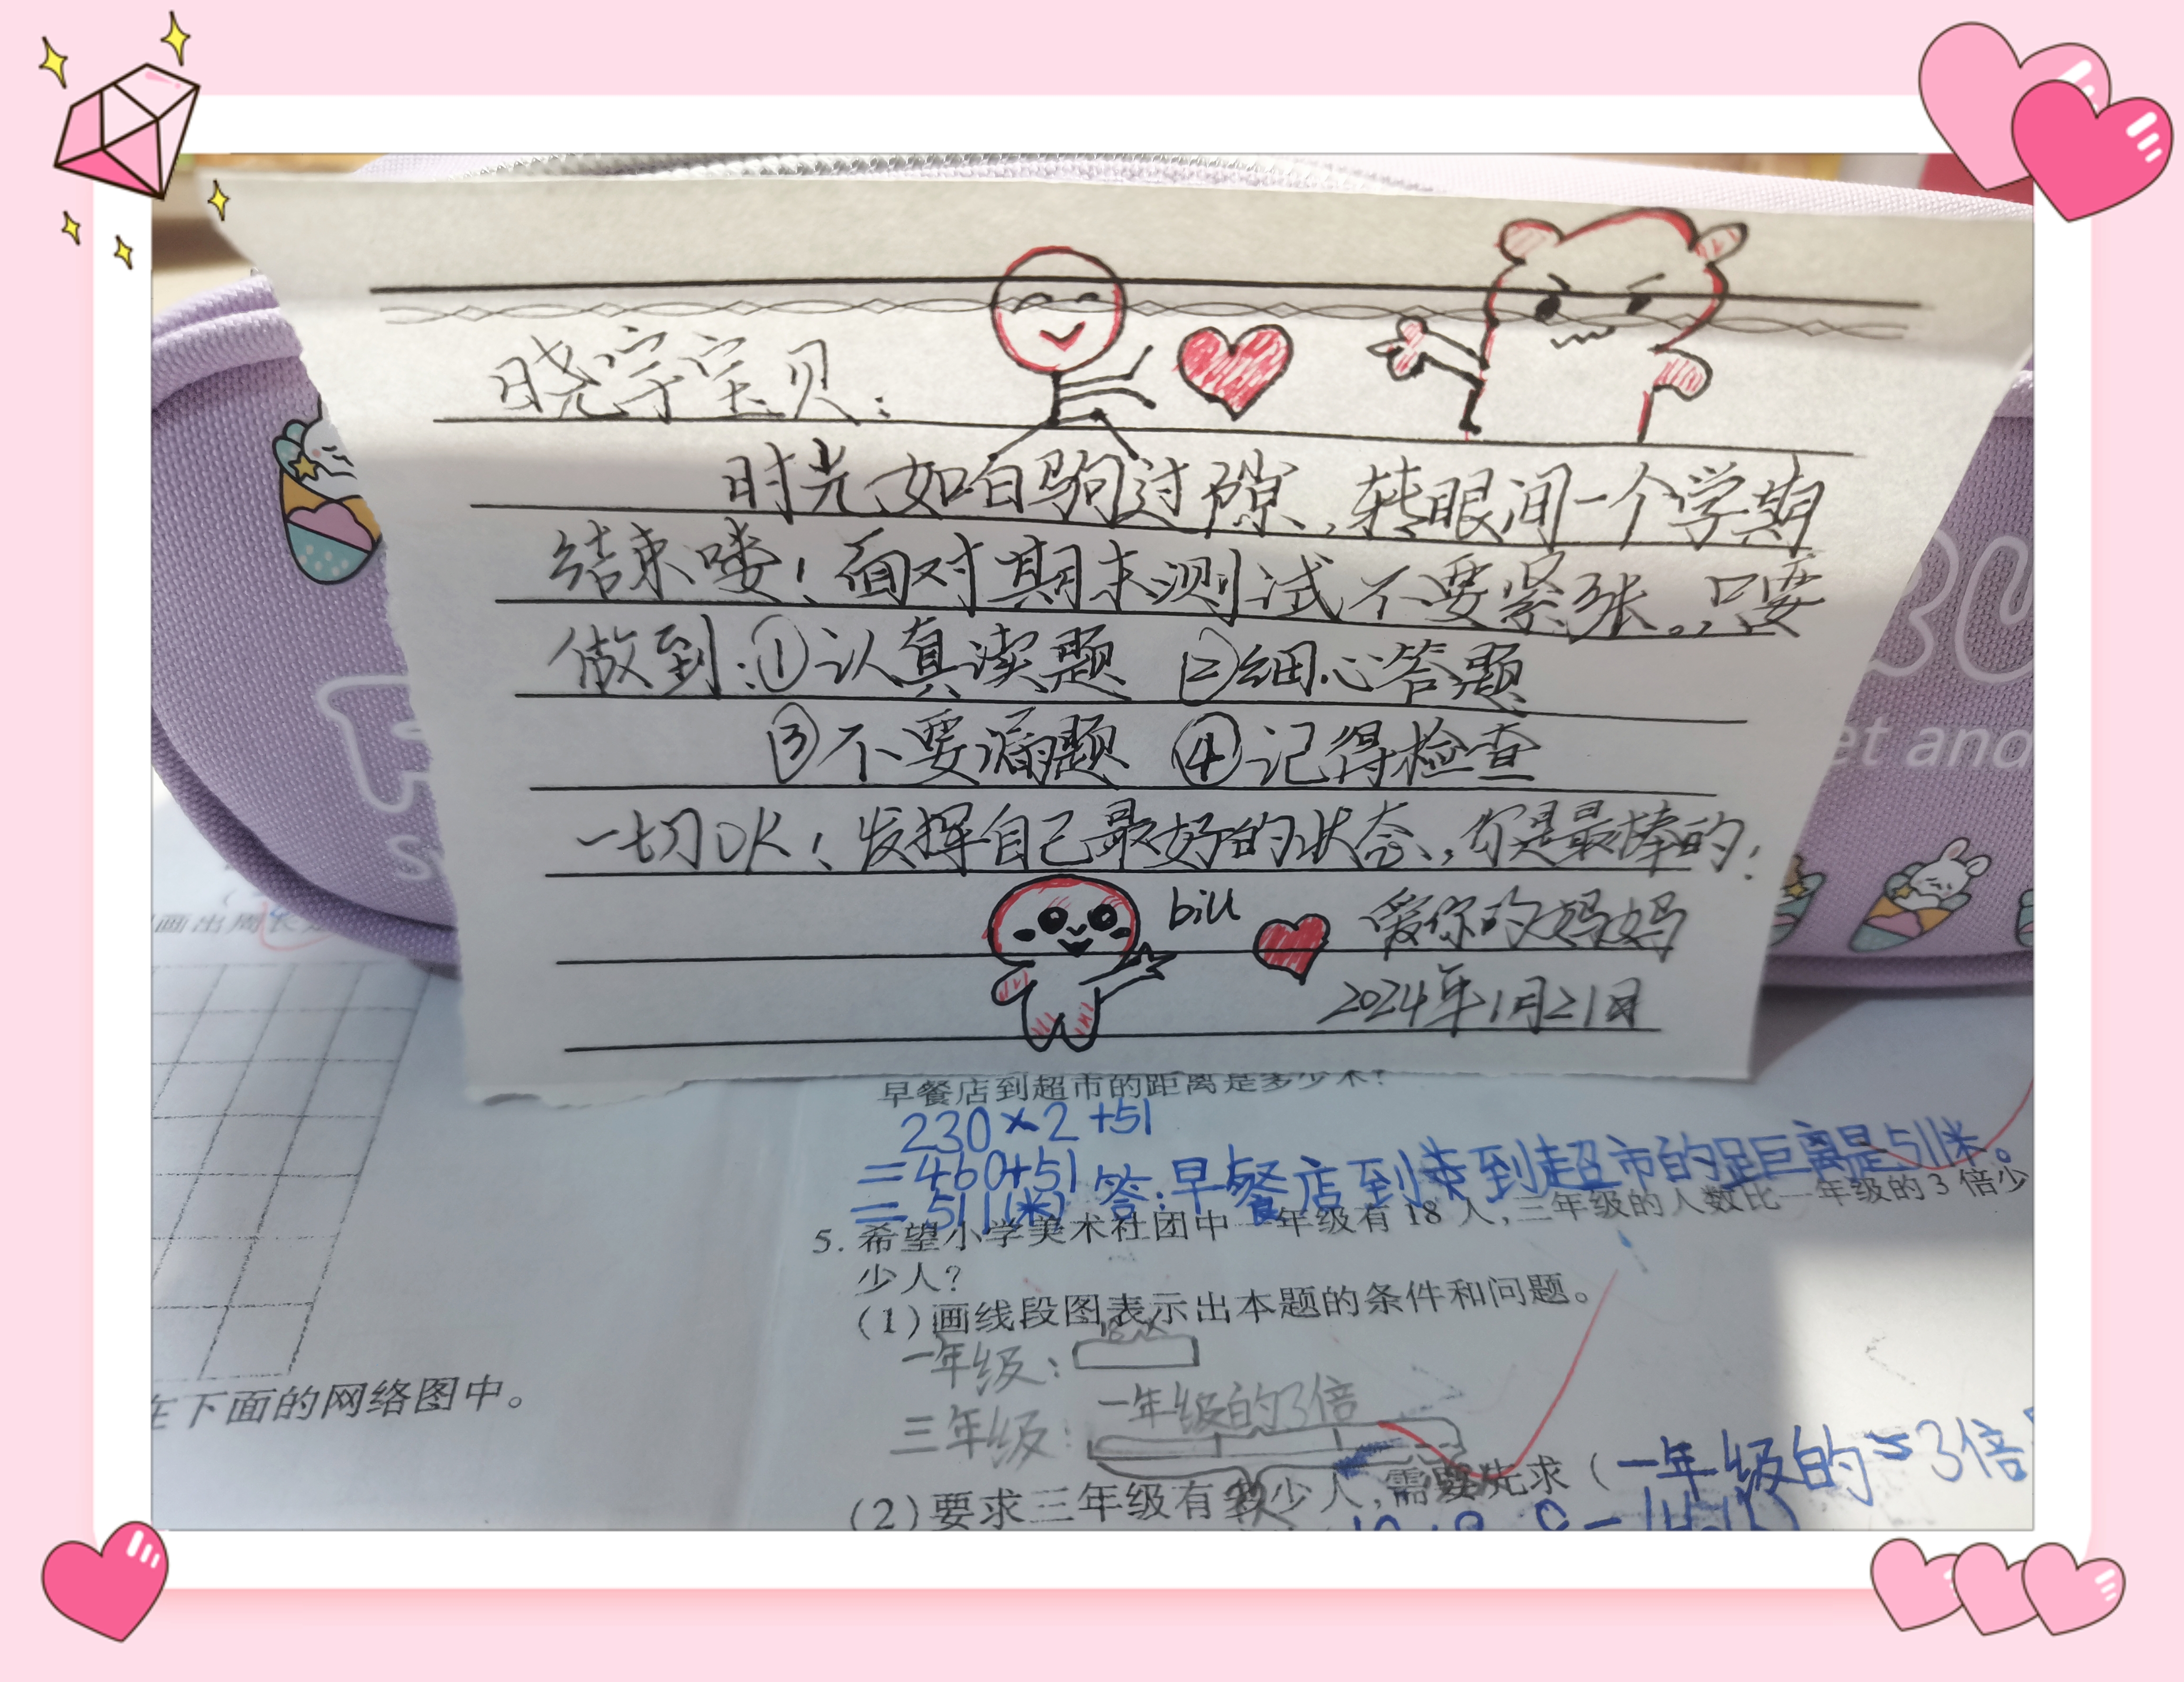 晓宇宝贝：
时光如白驹过隙，转眼间一个学期
结束喽！面对期末测试不要紧张。，只要
做到：①认真读题 ②细心答题
③不要漏题 ④记得检查
一切OK！发挥自己最好的状态，你是最棒的！
爱你的妈妈
2024年1月21日
et and
画出周长
在下面的网络图中。
早餐店到超市的距离是多少米？
230×2+51
=460+51
=511(米) 答：早餐店到超市的距离是511米。
5. 希望小学美术社团中一年级有18人，三年级的人数比一年级的3倍少
少人？
(1)画线段图表示出本题的条件和问题。
一年级：
一年级的3倍
三年级：
(2)要求三年级有多少人，需要先求（一年级的 3倍